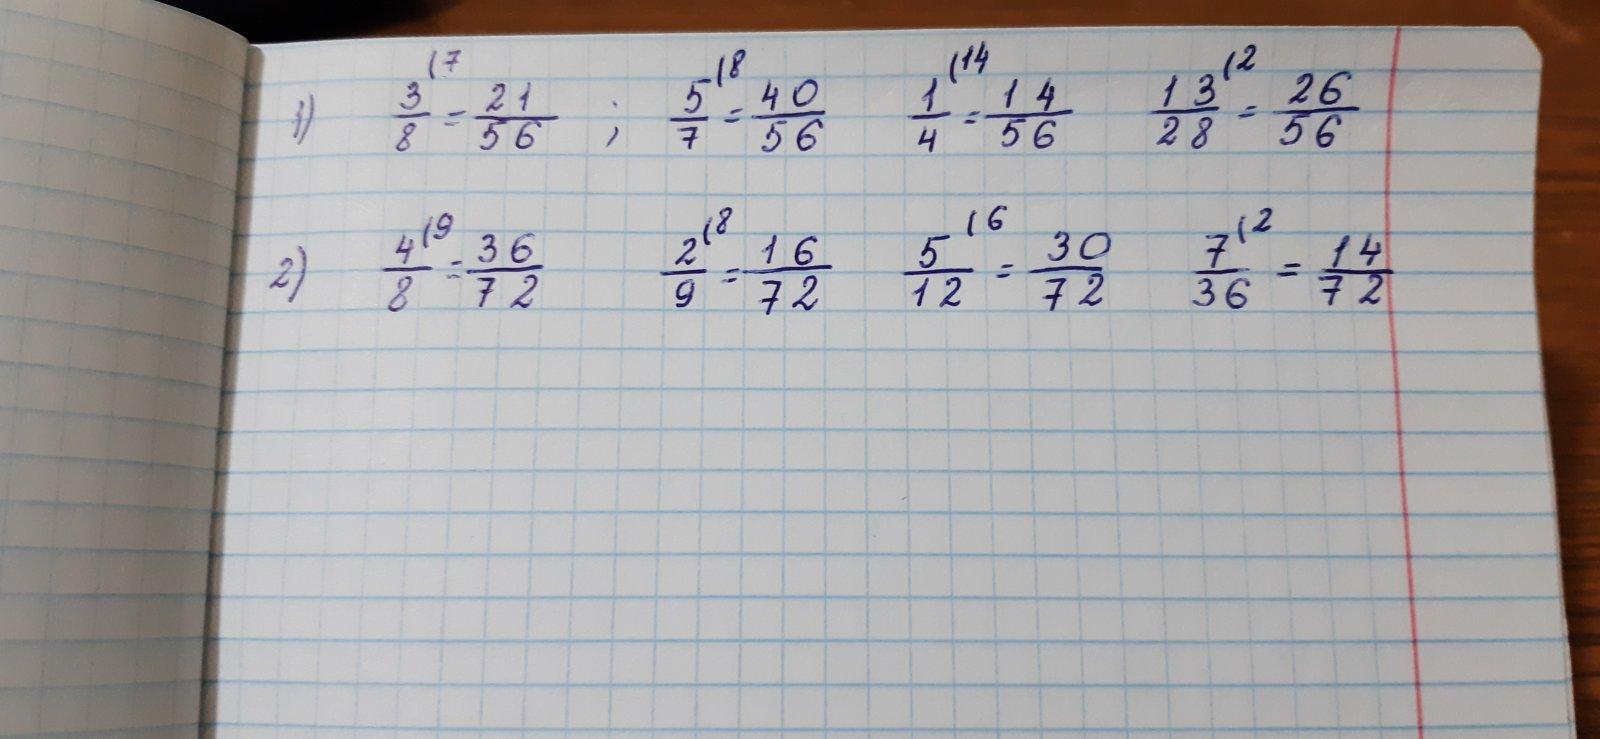 1) 3/8 (7 = 21/56 ; 5/7 (8 = 40/56 1/4 (14 = 14/56 13/28 (2 = 26/56
2) 4/8 (9 = 36/72 2/9 (8 = 16/72 5/12 (6 = 30/72 7/36 (2 = 14/72